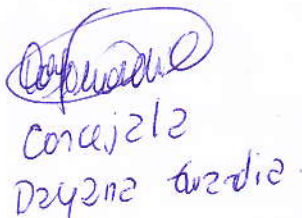 Concejala
Dayana Guardia.